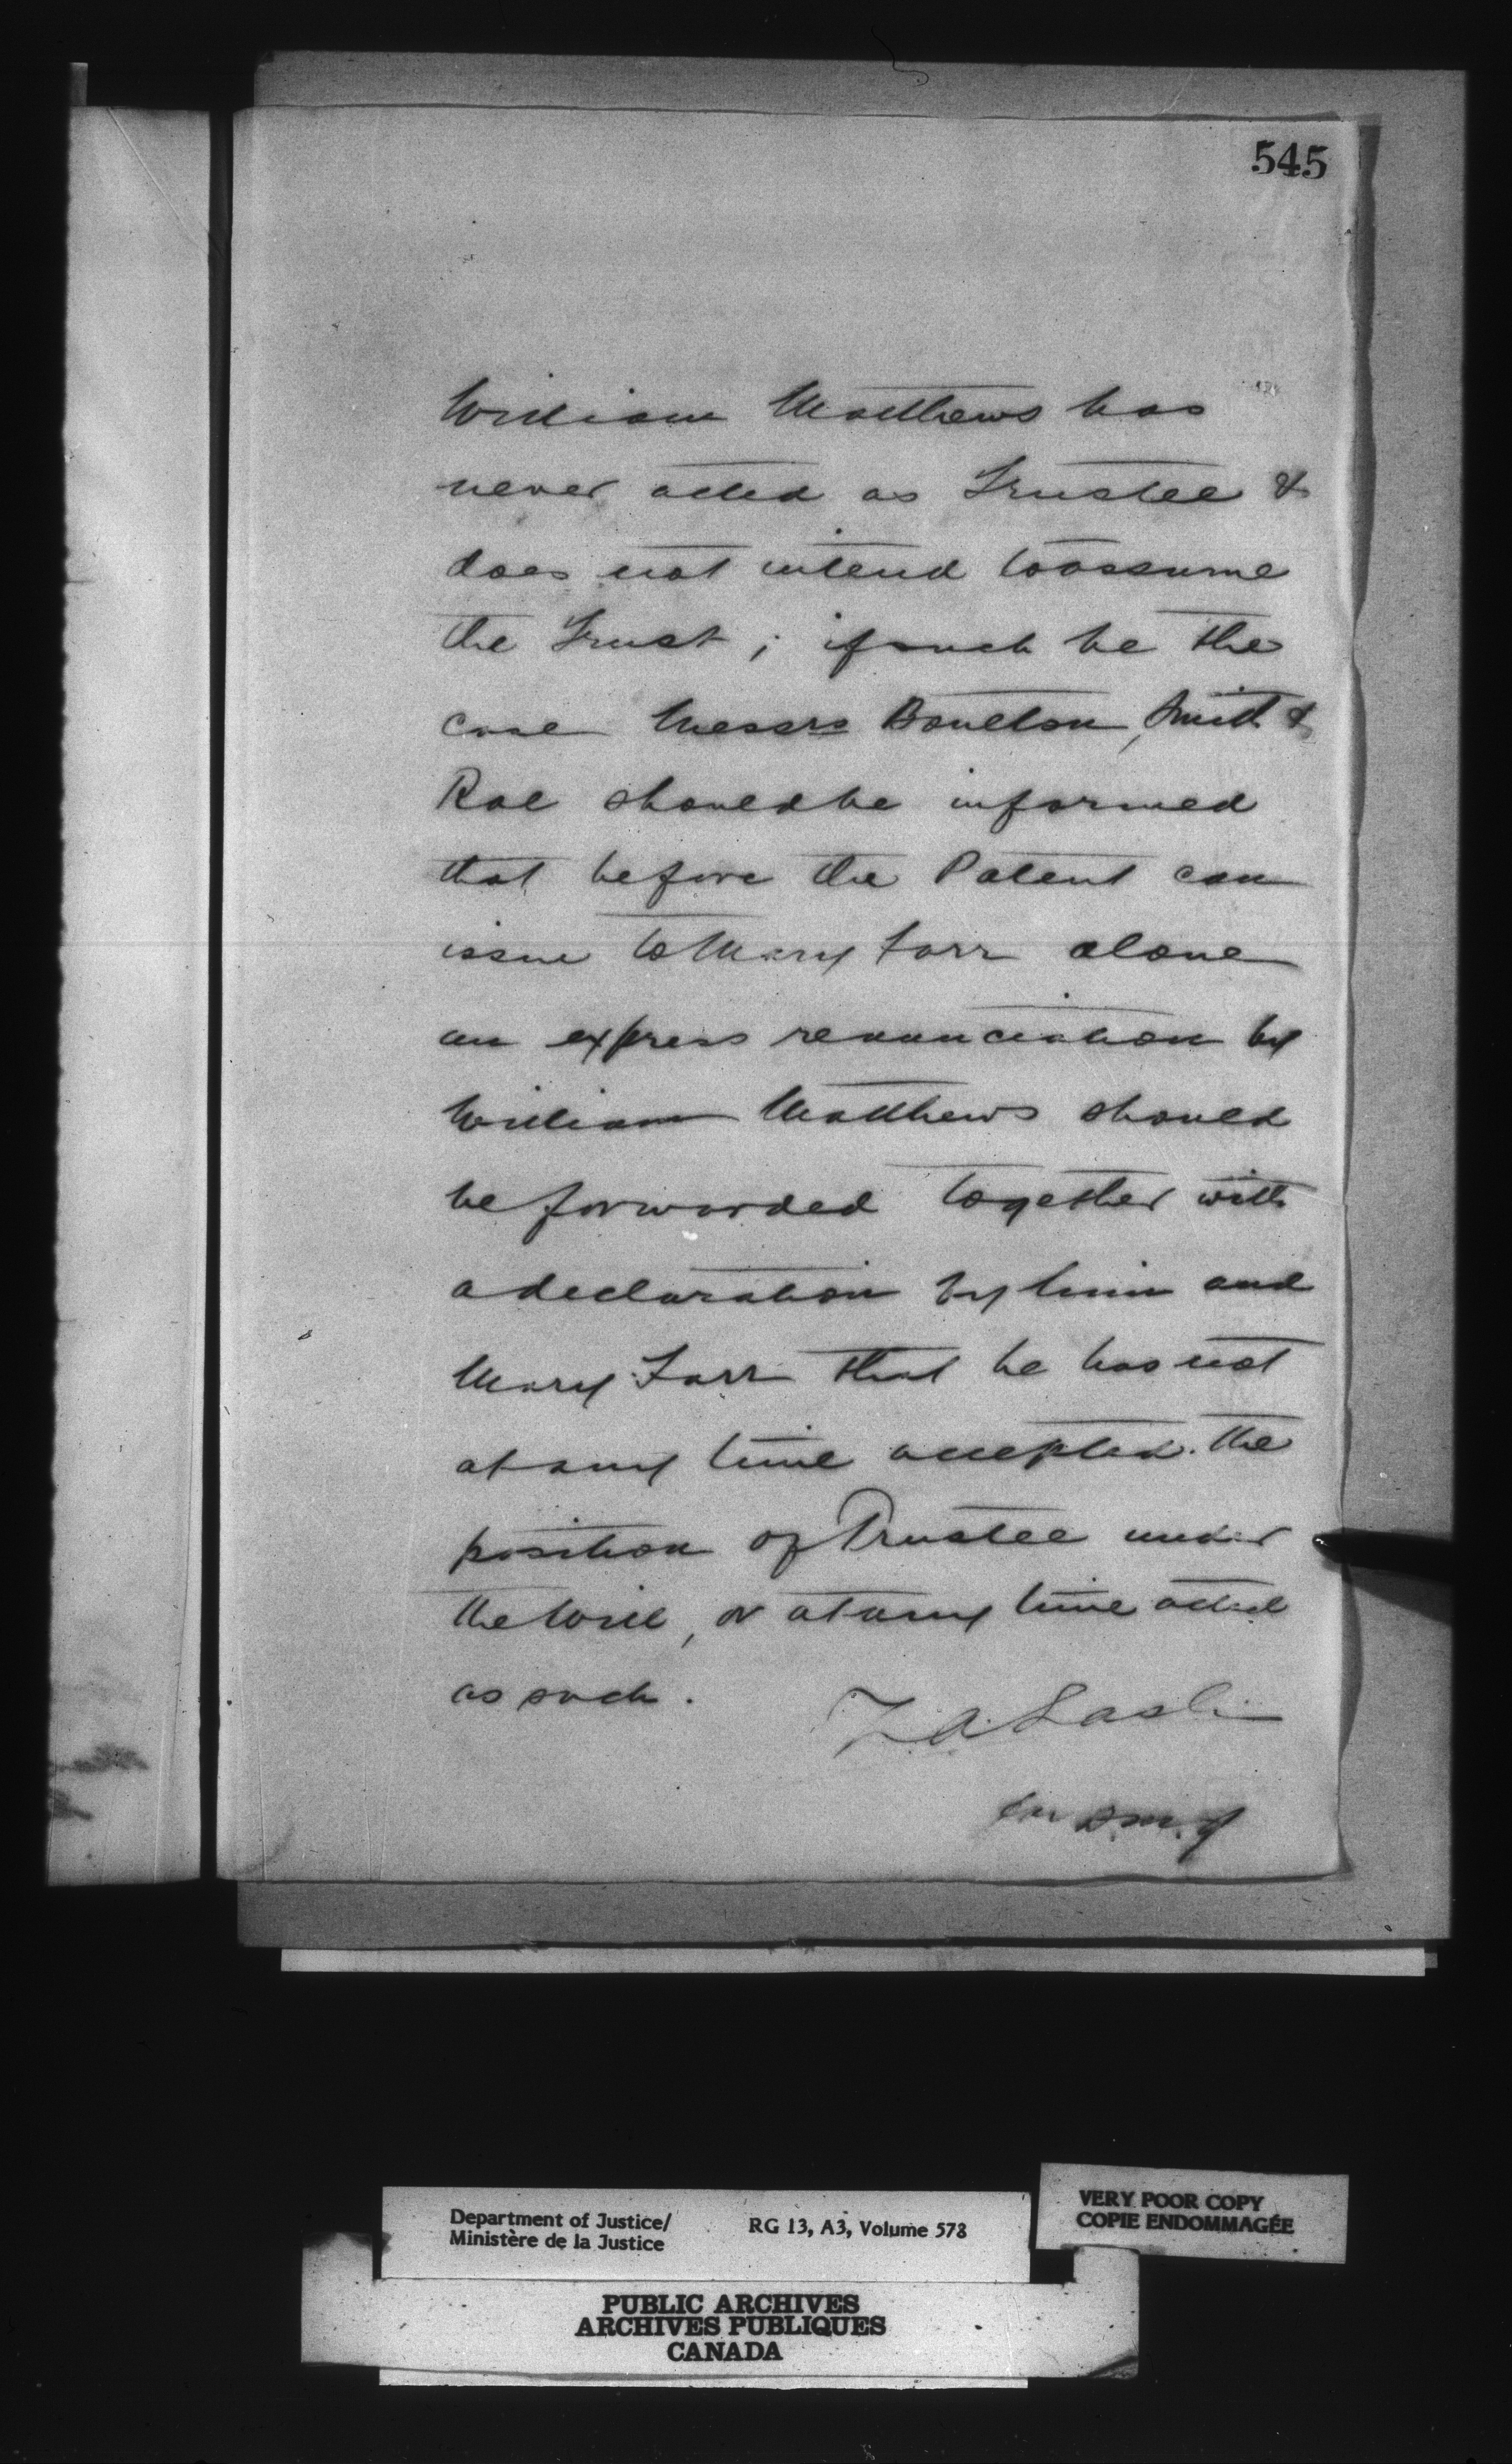 545
William Matthews has
never acted as Trustee &
does not intend to assume
the Trust ; if such be the
case Messrs Boulton, Smith &
Rae should be informed
that before the Patent can
issue to Mary Farr alone
an express renunciation by
William Matthews should
be forwarded together with
a declaration by him and
Mary Farr that he has not
at any time accepted the
position of Trustee under
the Will, or at any time acted
as such.
Z A Lash
D.M.J
Department of Justice/
Ministère de la Justice
RG 13, A3, Volume 578
VERY POOR COPY
COPIE ENDOMMAGÉE
PUBLIC ARCHIVES
ARCHIVES PUBLIQUES
CANADA